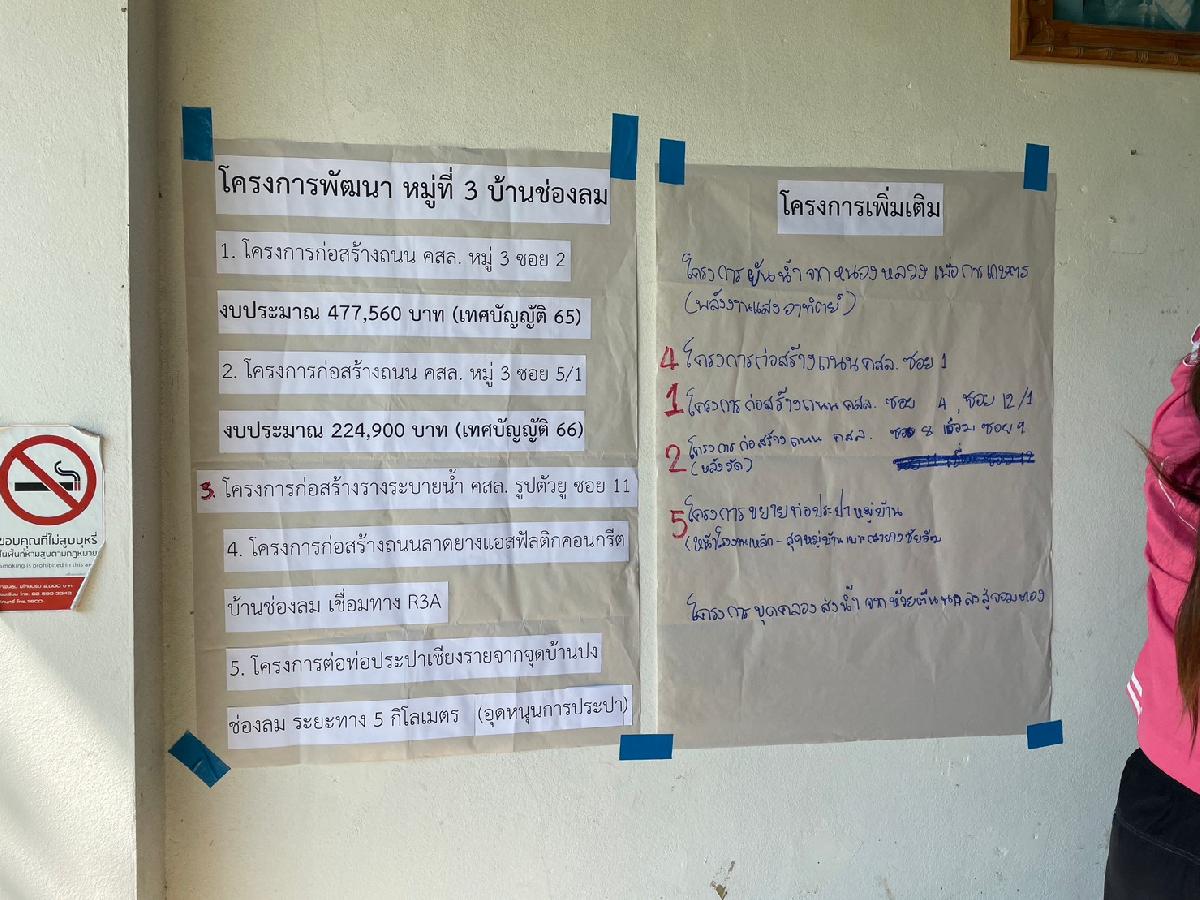 โครงการพัฒนา หมู่ที่ 3 บ้านช่องลม
1. โครงการก่อสร้างถนน คสล. หมู่ 3 ซอย 2
งบประมาณ 477,560 บาท (เทศบัญญัติ 65)
2. โครงการก่อสร้างถนน คสล. หมู่ 3 ซอย 5/1
งบประมาณ 224,900 บาท (เทศบัญญัติ 66)
3. โครงการก่อสร้างรางระบายน้ำ คสล. รูปตัวยู ซอย 11
4. โครงการก่อสร้างถนนลาดยางแอสฟัลติกคอนกรีต
บ้านช่องลม เชื่อมทาง R3A
5. โครงการต่อท่อประปาเชียงรายจากจุดบ้านปง
ช่องลม ระยะทาง 5 กิโลเมตร (อุดหนุนการประปา)
โครงการเพิ่มเติม
โครงการผันน้ำจากหนองหลวงเพื่อการเกษตร
(พลังงานแสงอาทิตย์)
4 โครงการก่อสร้างถนนคสล. ซอย 1
1 โครงการก่อสร้างถนนคสล. ซอย 4, ซอย 12/1
2 โครงการก่อสร้างถนน คสล. ซอย 8 เชื่อม ซอย 9
(หลังวัด)
5 โครงการขยายท่อประปาหมู่บ้าน
โครงการขุดคลองส่งน้ำจากห้วย
ขอบคุณที่ไม่สูบบุหรี่